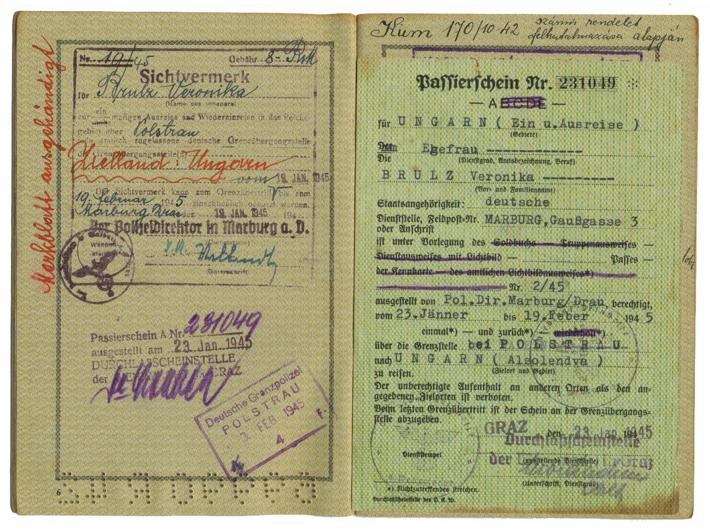 Merkblatt ausgehändigt
Nr. 19/45 Gebühr 8.- RM
Sichtvermerk
für Brulz Veronika
(Name des Inhabers)
zur ein maligen Ausreise und Wiedereinreise in das Reichs-
gebiet über Polstrau
amtlich zugelassene deutsche Grenzübergangsstelle
Zielland: Ungarn
vom 19. JAN. 1945
Der Sichtvermerk kann zum Grenzübertritt bis zum
19. Februar 1945
Marburg/Drau 19. JAN. 1945
Der Polizeidirektor in Marburg a. D.
Passierschein A Nr. 231049
ausgestellt am 23. Jan. 1945
DURCHLASSCHEINSTELLE
der GRAZ
Deutsche Grenzpolizei
POLSTRAU
3. FEB. 1945
4
6
Küm 170/10-42 számú rendelet
felhatalmazása alapján
Passierschein Nr. 231049
— A BCDE —
für UNGARN ( Ein u.Ausreise )
(Gebiete)
Der
Die Ehefrau
(Dienstgrad, Amtsbezeichnung, Beruf)
BRULZ Veronika
(Vor- und Familienname)
Staatsangehörigkeit: deutsche
Dienststelle, Feldpost-Nr. MARBURG, Gaußgasse 3
oder Anschrift
ist unter Vorlegung des Soldbuchs — Truppenausweises —
Dienstausweises mit Lichtbild — Passes —
der Kennkarte — des amtlichen Lichtbildausweises*)
Nr. 2/45
ausgestellt von Pol.Dir.Marburg/Drau, berechtigt,
vom 23.Jänner bis 19.Feber 1945
einmal*) — und zurück*) wiederholt*)
über die Grenzstelle bei POLSTRAU
nach UNGARN ( Alsolendva )
(Zielort und Gebiet)
zu reisen.
Der unberechtigte Aufenthalt an anderen Orten als den an-
gegebenen Zielorten ist verboten.
Beim letzten Grenzübertritt ist der Schein an der Grenzübergangs-
stelle abzugeben.
GRAZ den 23. Jan. 1945
Durchlaßscheinstelle
der Graz
Dienststempel
(ausstellende Dienststelle)
(Unterschrift, Dienstgrad)
*) Nichtzutreffendes streichen
Durchlaßscheinstelle des O.K.W.